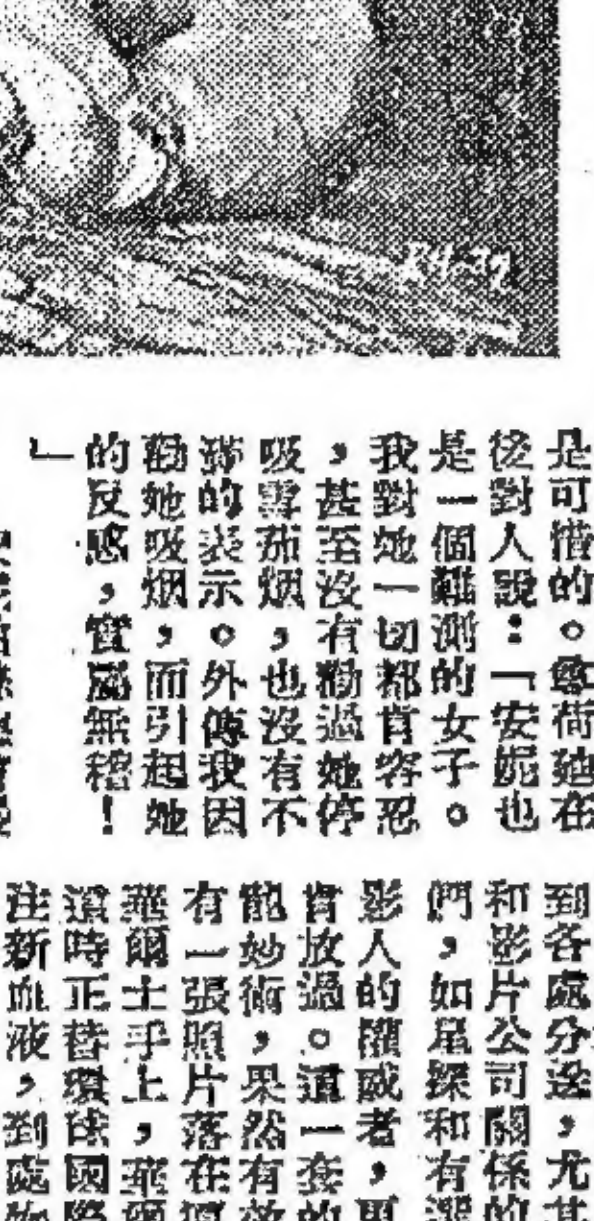 是可惜的。荷廸在
後對人說：「安妮也
是一個難測的女子。
我對她一切都肯容忍
，甚至沒有勸過她停
吸雪茄烟，也沒有不
滿的表示。外傳我因
勸她吸烟，而引起她
的反感，實屬無稽！
」
到各處分送，尤其
和影片公司關係的
們，如星探和有選
影人的權威者，更
肯放過。這一套的
妙術，果然有效
有一張照片落在
華爾士手上，華爾
這時正替環球國際
注新血液，到處物